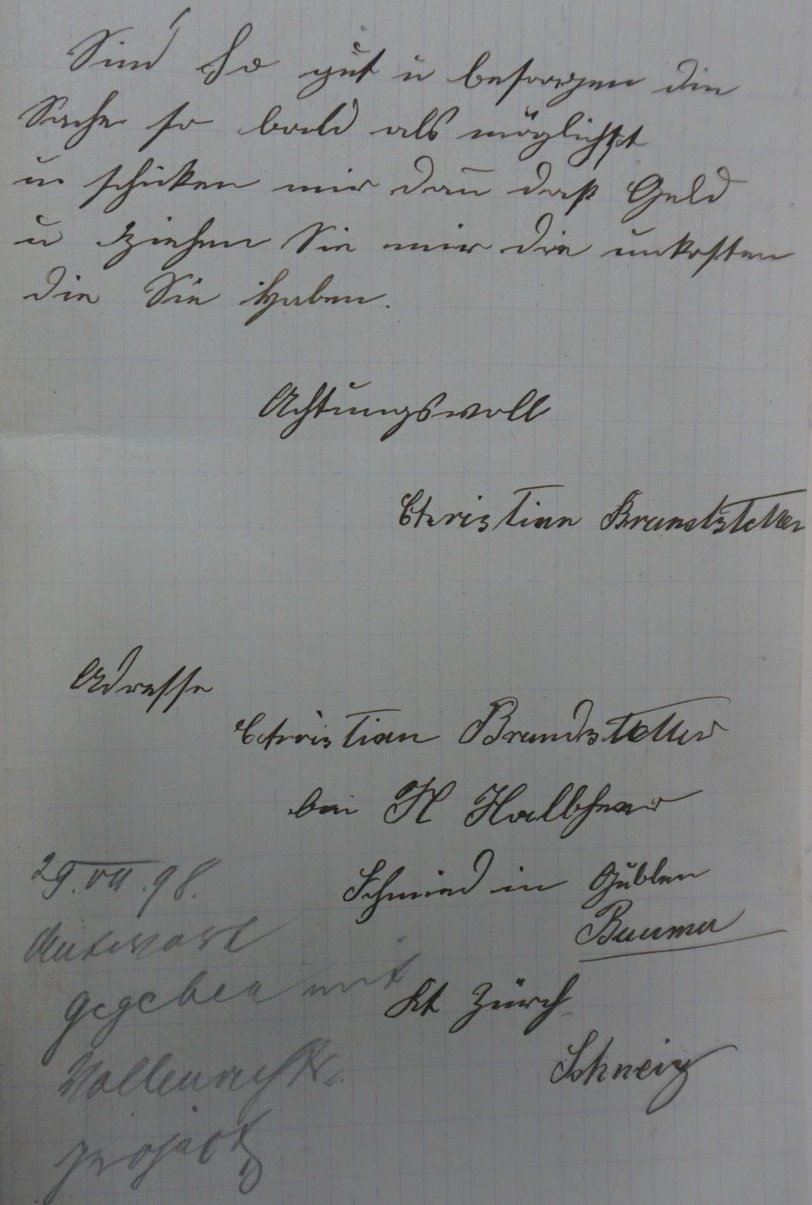 Sind So gut u besorgen die
Sache so bald als möglichst
u schicken mir dan̄ daß Geld
u ziehen Sie mir die unkosten
die Sie haben.
Achtungsvoll
Christian Brandstetter
Adresse
Christian Brandstetter
bei H Halbherr
Schmied in Gublen
Bauma
Kt Zürch
Schweiz
29. VII. 98.
Antwort
gegeben mit
Vollmachts
project